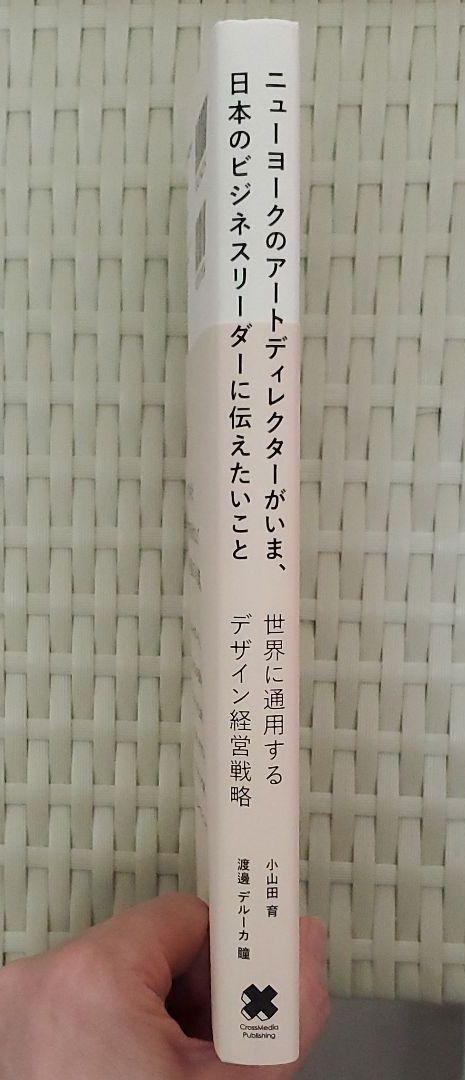 ニューヨークのアートディレクターがいま、
日本のビジネスリーダーに伝えたいこと
世界に通用する
デザイン経営戦略
小山田 育
渡邊 デルーカ 瞳
CrossMedia
Publishing